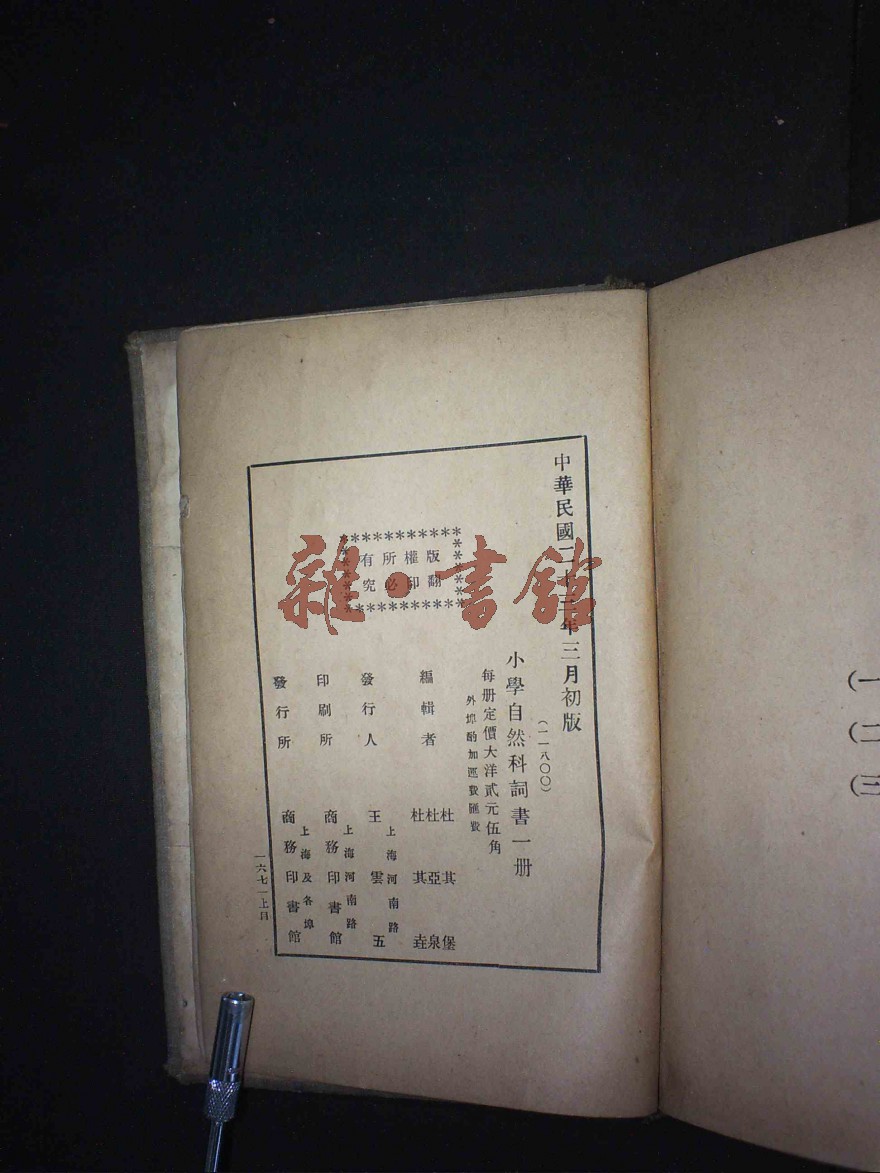 中華民國二十三年三月初版
(二一八〇〇)
小學自然科詞書一册
每册定價大洋貳元伍角
外埠酌加運費匯費
編輯者
杜其堡
杜亞泉
杜其垚
發行人
上海河南路
王雲五
印刷所
上海河南路
商務印書館
發行所
上海及各埠
商務印書館
版權所有
翻印必究
一六七一上
(一
(二
(三
雜·書館